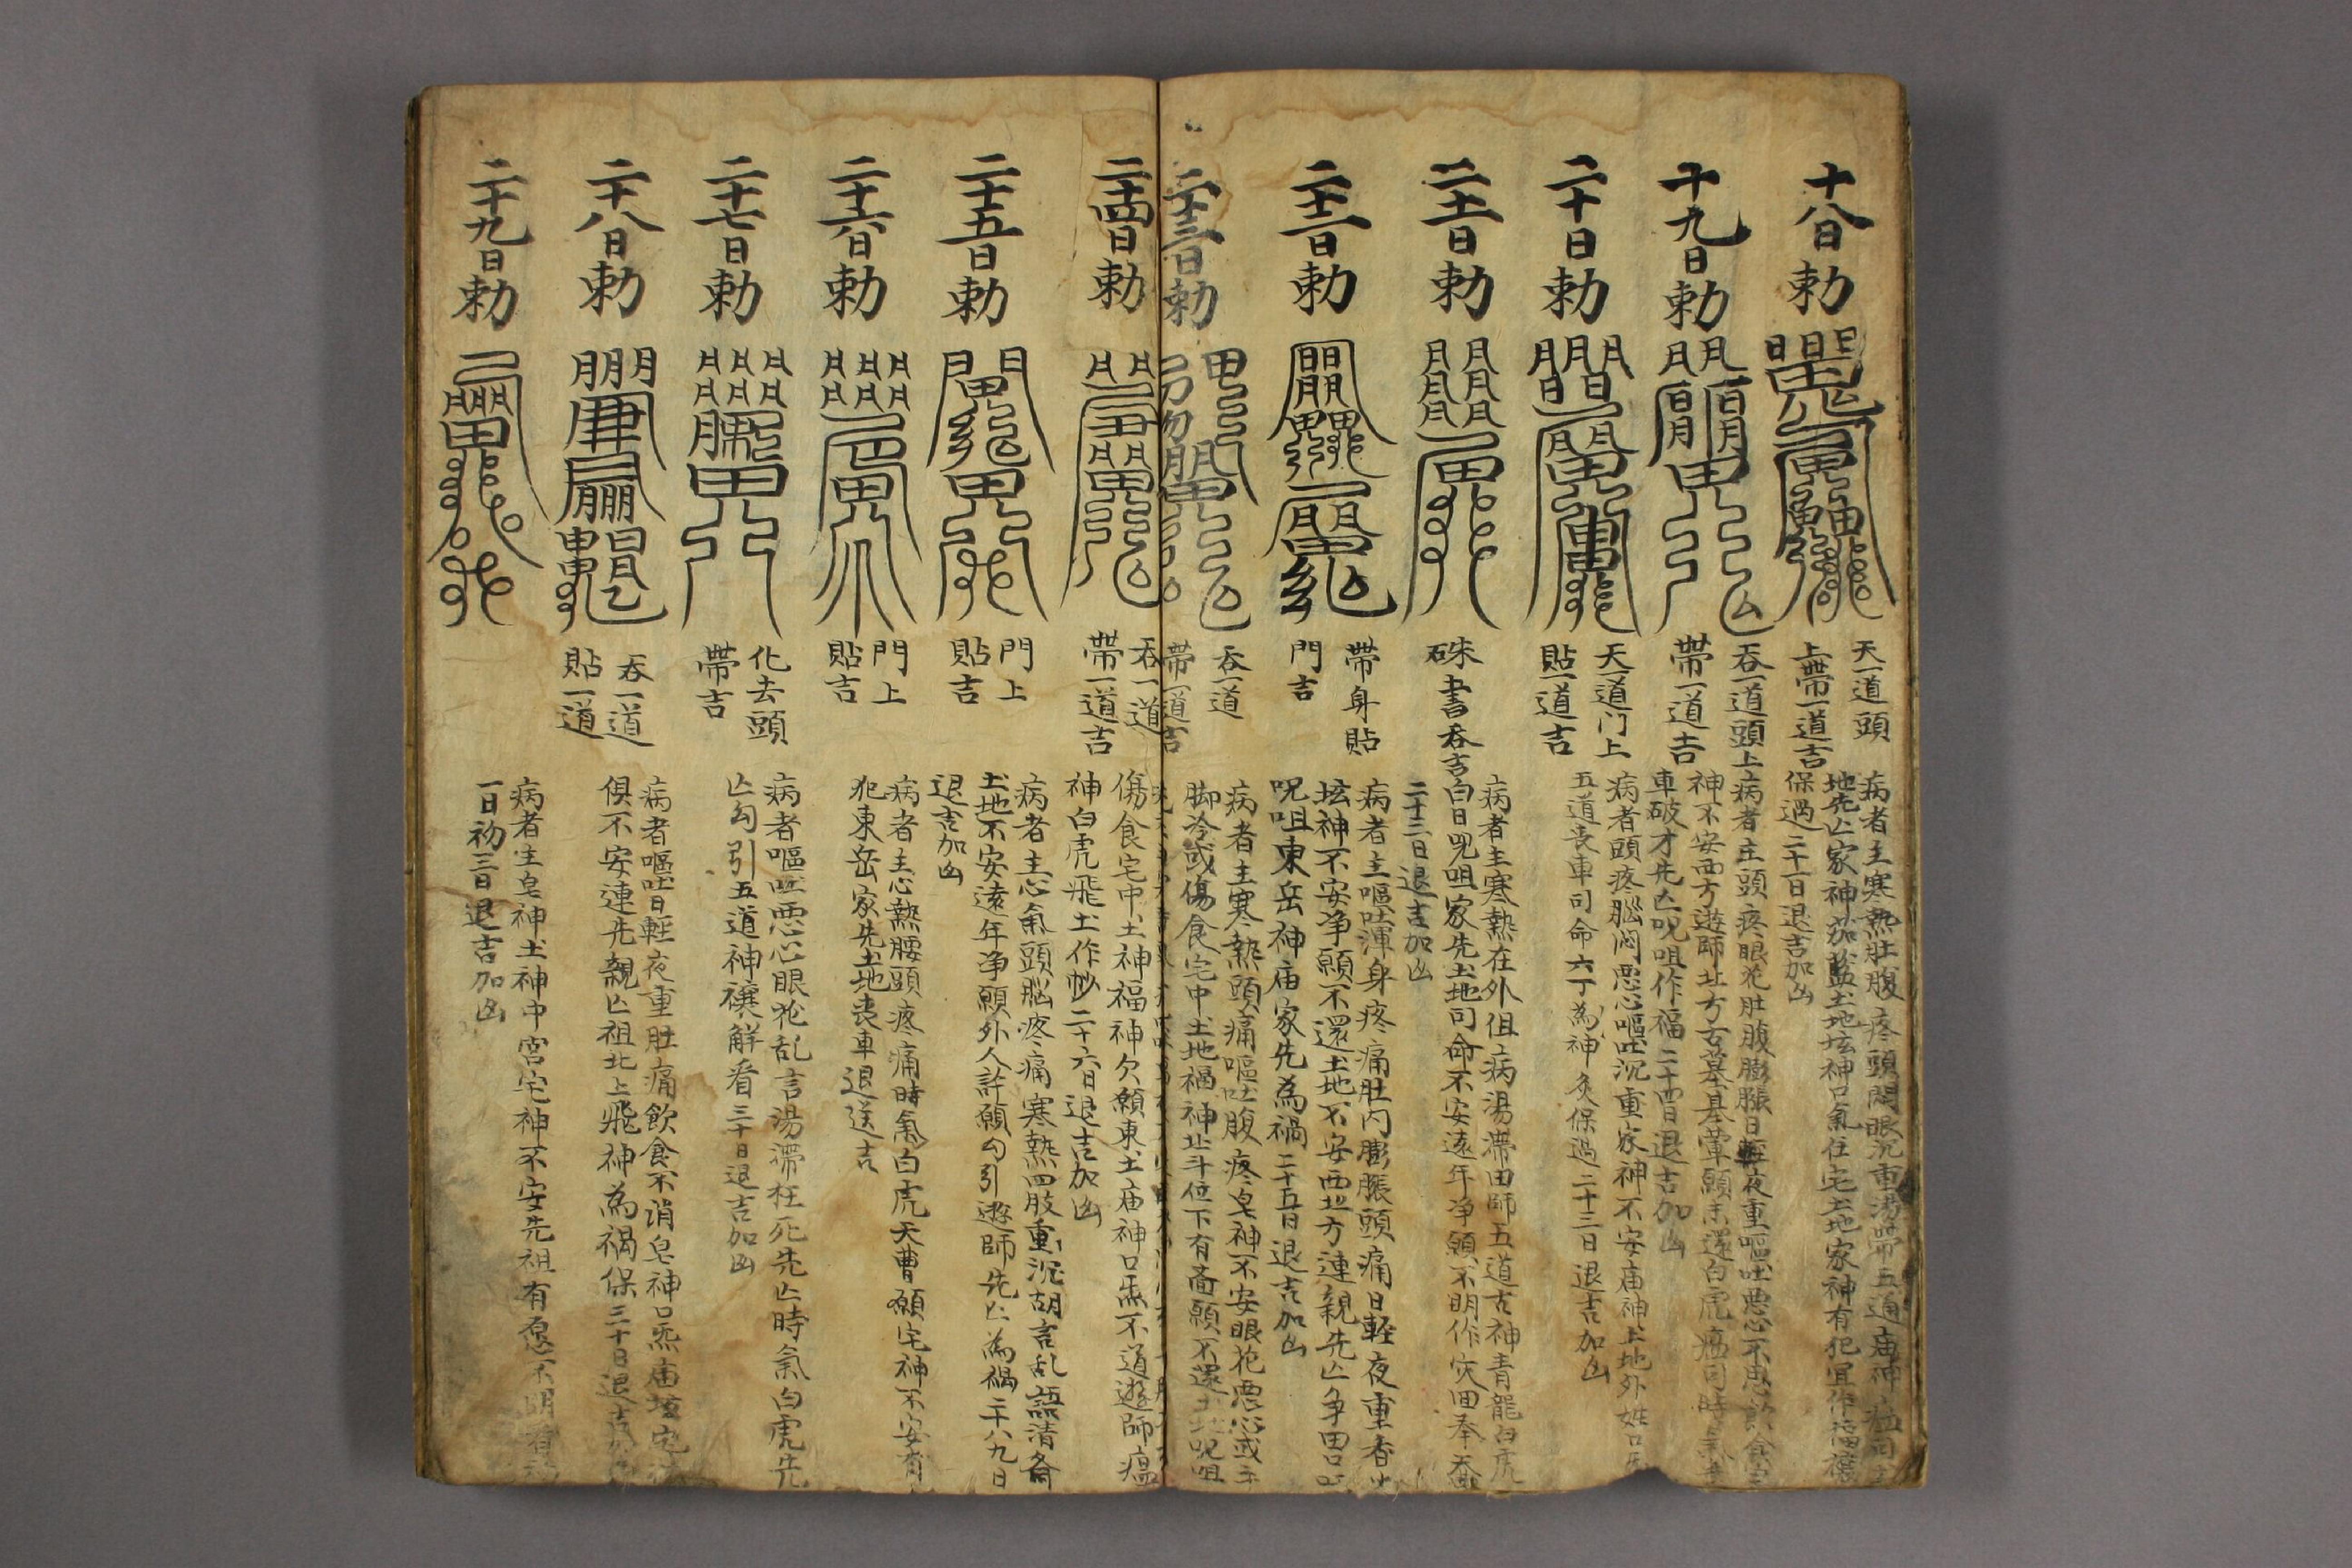 十八日勅
天一道頭
上帶一道吉
病者主寒熱肚腹疼頭悶眼沉重湯帶五道庙神
地先亡家神茄藍土地坛神口氣住宅土地家神有犯宜作福禳
保過二十一日退吉加凶
十九日勅
吞一道頭上
帶一道吉
病者主頭疼眼花肚腹膨脹日輕夜重嘔吐悪心不思飲食
神不安西方遊師北方古墓基葷願未還白虎
車破才先亡呪咀作福二十四日退吉加凶
二十日勅
天一道门上
貼一道吉
病者頭疼腦闷悪心嘔吐沉重家神不安庙神土地外姓
五道丧車司命六丁為神灸保過二十三日退吉加凶
二十一日勅
硃書吞吉
病者主寒熱在外伹病湯帶田師五道古神青龍白虎
白日呪咀家先土地司命不安遠年净願不明作灾田奉
二十三日退吉加凶
二十二日勅
帶身貼
門吉
病者主嘔吐渾身疼痛肚内膨脹頭痛日輕夜重香
坛神不安净願不還土地不安西北方連親先亡争田
呪咀東岳神庙家先為禍二十五日退吉加凶
二十三日勅
吞一道
帶一道吉
病者主寒熱頭痛嘔吐腹疼皂神不安眼花悪心或
脚冷或傷食宅中土地福神北斗位下有斎願不還土地呪咀
二十四日勅
吞一道
帶一道吉
傷食宅中土神福神欠願東土庙神口炁不道遊師瘟
神白虎飛土作𢗅二十六日退吉加凶
二十五日勅
門上
貼吉
病者主心氣頭脳疼痛寒熱四肢重沉胡言乱語清斎
土地不安遠年净願外人許願勾引遊師先亡為禍二十八九日
退吉加凶
二十六日勅
門上
貼吉
病者主心熱腰頭疼痛時氣白虎天曹願宅神不安有
犯東岳家先土地丧車退送吉
二十七日勅
化去頭
帶吉
病者嘔吐悪心眼花乱言湯滯枉死先亡時氣白虎先
亡勾引五道神禳解看三十日退吉加凶
二十八日勅
吞一道
貼一道
病者嘔吐日輕夜重肚痛飲食不消皂神口炁庙坛宅
俱不安連先親亡祖北上飛神為禍保三十日退吉
二十九日勅
病者主皂神土神中宫宅神不安先祖有愿不明有
一日初三日退吉加凶